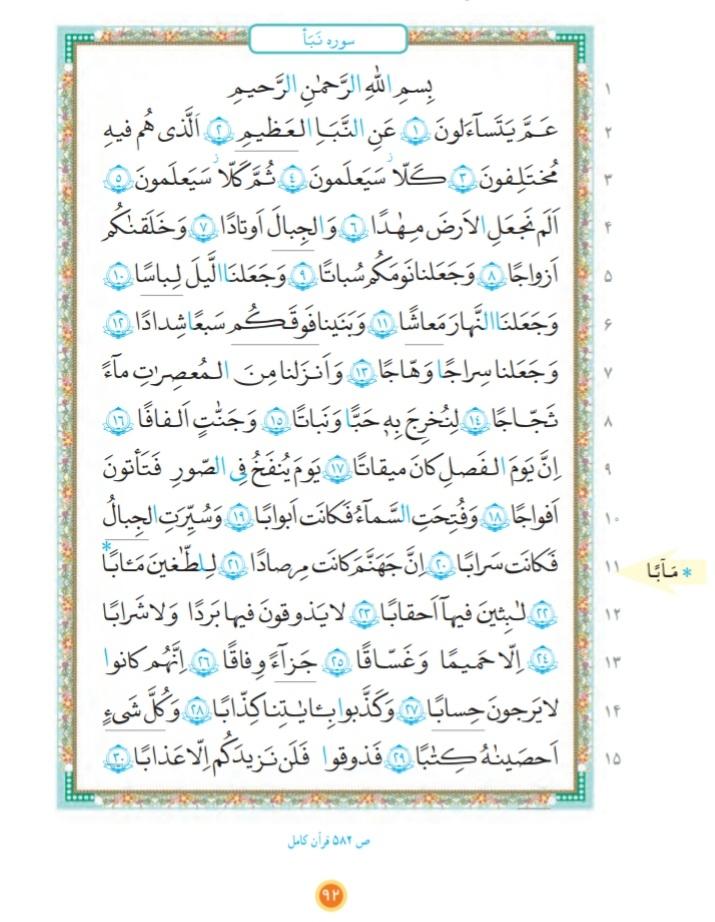 سوره نَبَأ
بِسمِ اللهِ الرَّحمٰنِ الرَّحیمِ
۱
عَمَّ یَتَسآءَلونَ ۱ عَنِ النَّبَاِ العَظیمِ ۲ اَلَّذی هُم فیهِ
۲
مُختَلِفونَ ۳ کَلّا سَیَعلَمونَ ۴ ثُمَّ کَلّا سَیَعلَمونَ ۵
۳
اَلَم نَجعَلِ الاَرضَ مِهٰدًا ۶ وَ الجِبالَ اَوتادًا ۷ وَ خَلَقنٰکُم
۴
اَزواجًا ۸ وَ جَعَلنا نَومَکُم سُباتًا ۹ وَ جَعَلنَا الَّیلَ لِباسًا ۱۰
۵
وَ جَعَلنَا النَّهارَ مَعاشًا ۱۱ وَ بَنَینا فَوقَکُم سَبعًا شِدادًا ۱۲
۶
وَ جَعَلنا سِراجًا وَهّاجًا ۱۳ وَ اَنزَلنا مِنَ المُعصِرٰتِ مآءً
۷
ثَجّاجًا ۱۴ لِنُخرِجَ بِهٖ حَبًّا وَ نَباتًا ۱۵ وَ جَنّٰتٍ اَلفافًا ۱۶
۸
اِنَّ یَومَ الفَصلِ کانَ میقاتًا ۱۷ یَومَ یُنفَخُ فِی الصّورِ فَتَأتونَ
۹
اَفواجًا ۱۸ وَ فُتِحَتِ السَّمآءُ فَکانَت اَبوابًا ۱۹ وَ سُیِّرَتِ الجِبالُ
۱۰
فَکانَت سَرابًا ۲۰ اِنَّ جَهَنَّمَ کانَت مِرصادًا ۲۱ لِلطّٰغینَ مَـٔابًا*
۱۱
* مَـآبًا
لٰبِثینَ فیهآ اَحقابًا ۲۳ لا یَذوقونَ فیها بَردًا وَ لا شَرابًا
۱۲
۲۲
۲۴ اِلّا حَمیمًا وَ غَسّاقًا ۲۵ جَزآءً وِفاقًا ۲۶ اِنَّهُم کانوا
۱۳
لا یَرجونَ حِسابًا ۲۷ وَ کَذَّبوا بِـٔایٰتِنا کِذّابًا ۲۸ وَ کُلَّ شَیءٍ
۱۴
اَحصَینٰهُ کِتٰبًا ۲۹ فَذوقوا فَلَن نَزیدَکُم اِلّا عَذابًا ۳۰
۱۵
ص ۵۸۲ قرآن کامل
۹۲